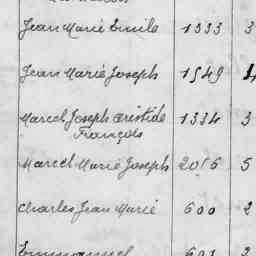 Jean Marie Emile 1333 3
Jean Marie Joseph 1549 1
Marcel Joseph Aristide 1334 3
François
Marcel Marie Joseph 2056 5
Charles Jean Marie 600 2
Emmanuel 601 2